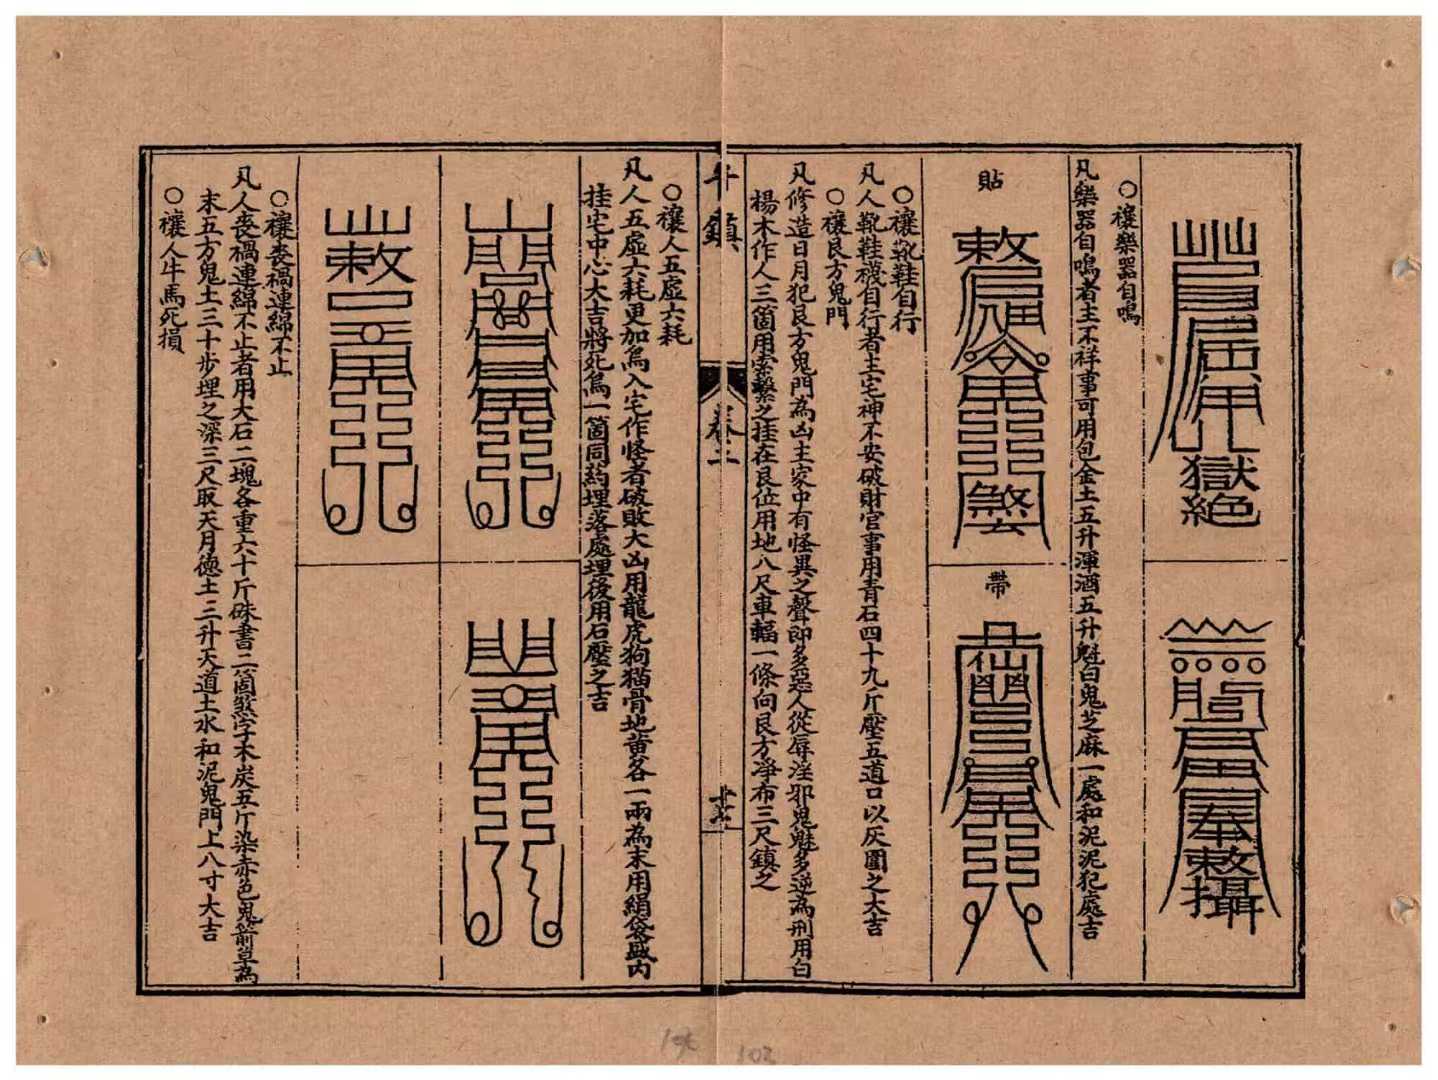 獄絕
奉敕攝
○禳樂器自鳴
凡樂器自鳴者主不祥事可用包金土五升渾酒五升魁白鬼芝麻一處和泥泥犯處吉
貼
敕
煞
帶
○禳靴鞋自行
凡人靴鞋襪自行者主宅神不安破財官事用青石四十九斤壓五道口以灰圍之大吉
○禳艮方鬼門
凡修造日月犯艮方鬼門為凶主家中有怪異之聲即多惡人從辱淫邪鬼魅多逆為刑用白
楊木作人三箇用索繫之挂在艮位用地八尺車輻一條向艮方淨布三尺鎮之
鎮
卷二
○禳人五虛六耗
凡人五虛六耗更加鳥入宅作怪者破敗大凶用龍虎狗猫骨地黄各一兩為末用絹袋盛内
挂宅中心大吉將死鳥一箇同药埋落處埋後用石壓之吉
敕
○禳喪禍連綿不止
凡人喪禍連綿不止者用大石二塊各重六十斤硃書二箇煞字木炭五斤染赤色鬼箭草為
末五方鬼土三十步埋之深三尺取天月德土三升天道土水和泥鬼門上八寸大吉
○禳人牛馬死損
102